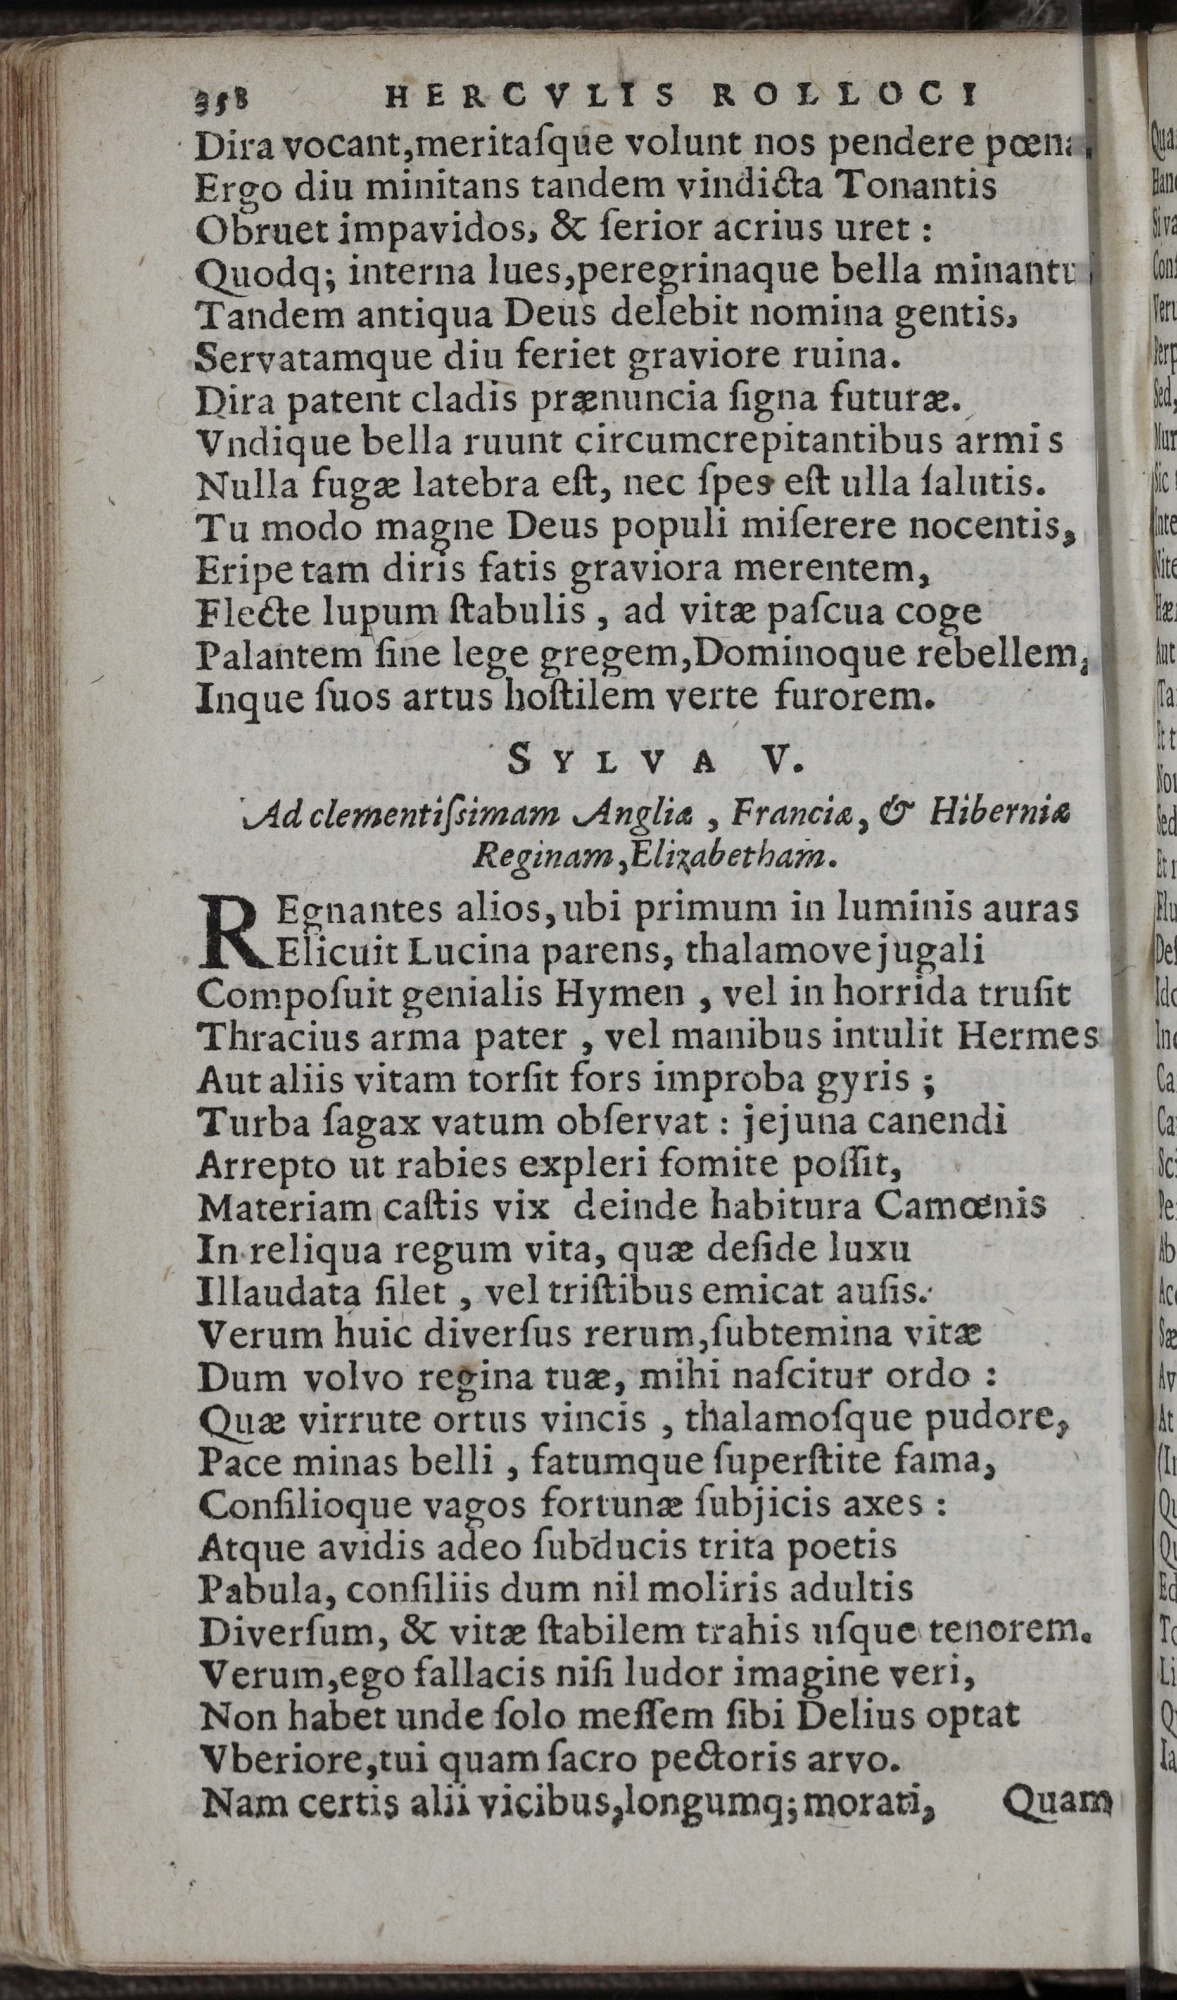 358 HERCVLIS ROLLOCI
Dira vocant,meritaſque volunt nos pendere
Ergo diu minitans tandem vindicta Tonantis
Obruet impavidos, & ſerior acrius uret :
Quodq; interna lues,peregrinaque bella
Tandem antiqua Deus delebit nomina gentis,
Servatamque diu feriet graviore ruina.
Dira patent cladis prænuncia ſigna futuræ.
Vndique bella ruunt circumcrepitantibus armis
Nulla fugæ latebra eſt, nec ſpes eſt ulla ſalutis.
Tu modo magne Deus populi miſerere nocentis,
Eripe tam diris fatis graviora merentem,
Flecte lupum ſtabulis , ad vitæ paſcua coge
Palantem ſine lege gregem,Dominoque rebellem,
Inque ſuos artus hoſtilem verte furorem.
SYLVA V.
Ad clementiſsimam Angliæ , Franciæ, & Hiberniæ
Reginam,Elizabetham.
REgnantes alios,ubi primum in luminis auras
Elicuit Lucina parens, thalamove jugali
Compoſuit genialis Hymen , vel in horrida truſit
Thracius arma pater , vel manibus intulit Hermes
Aut aliis vitam torſit fors improba gyris ;
Turba ſagax vatum obſervat : jejuna canendi
Arrepto ut rabies expleri fomite poſſit,
Materiam caſtis vix deinde habitura Camœnis
In reliqua regum vita, quæ deſide luxu
Illaudata ſilet , vel triſtibus emicat auſis.
Verum huic diverſus rerum,ſubtemina vitæ
Dum volvo regina tuæ, mihi naſcitur ordo :
Quæ virrute ortus vincis , thalamoſque pudore,
Pace minas belli , fatumque ſuperſtite fama,
Conſilioque vagos fortunæ ſubjicis axes :
Atque avidis adeo ſubducis trita poetis
Pabula, conſiliis dum nil moliris adultis
Diverſum, & vitæ ſtabilem trahis uſque tenorem.
Verum,ego fallacis niſi ludor imagine veri,
Non habet unde ſolo meſſem ſibi Delius optat
Vberiore,tui quam ſacro pectoris arvo.
Nam certis alii vicibus,longumq; morati,
Quam